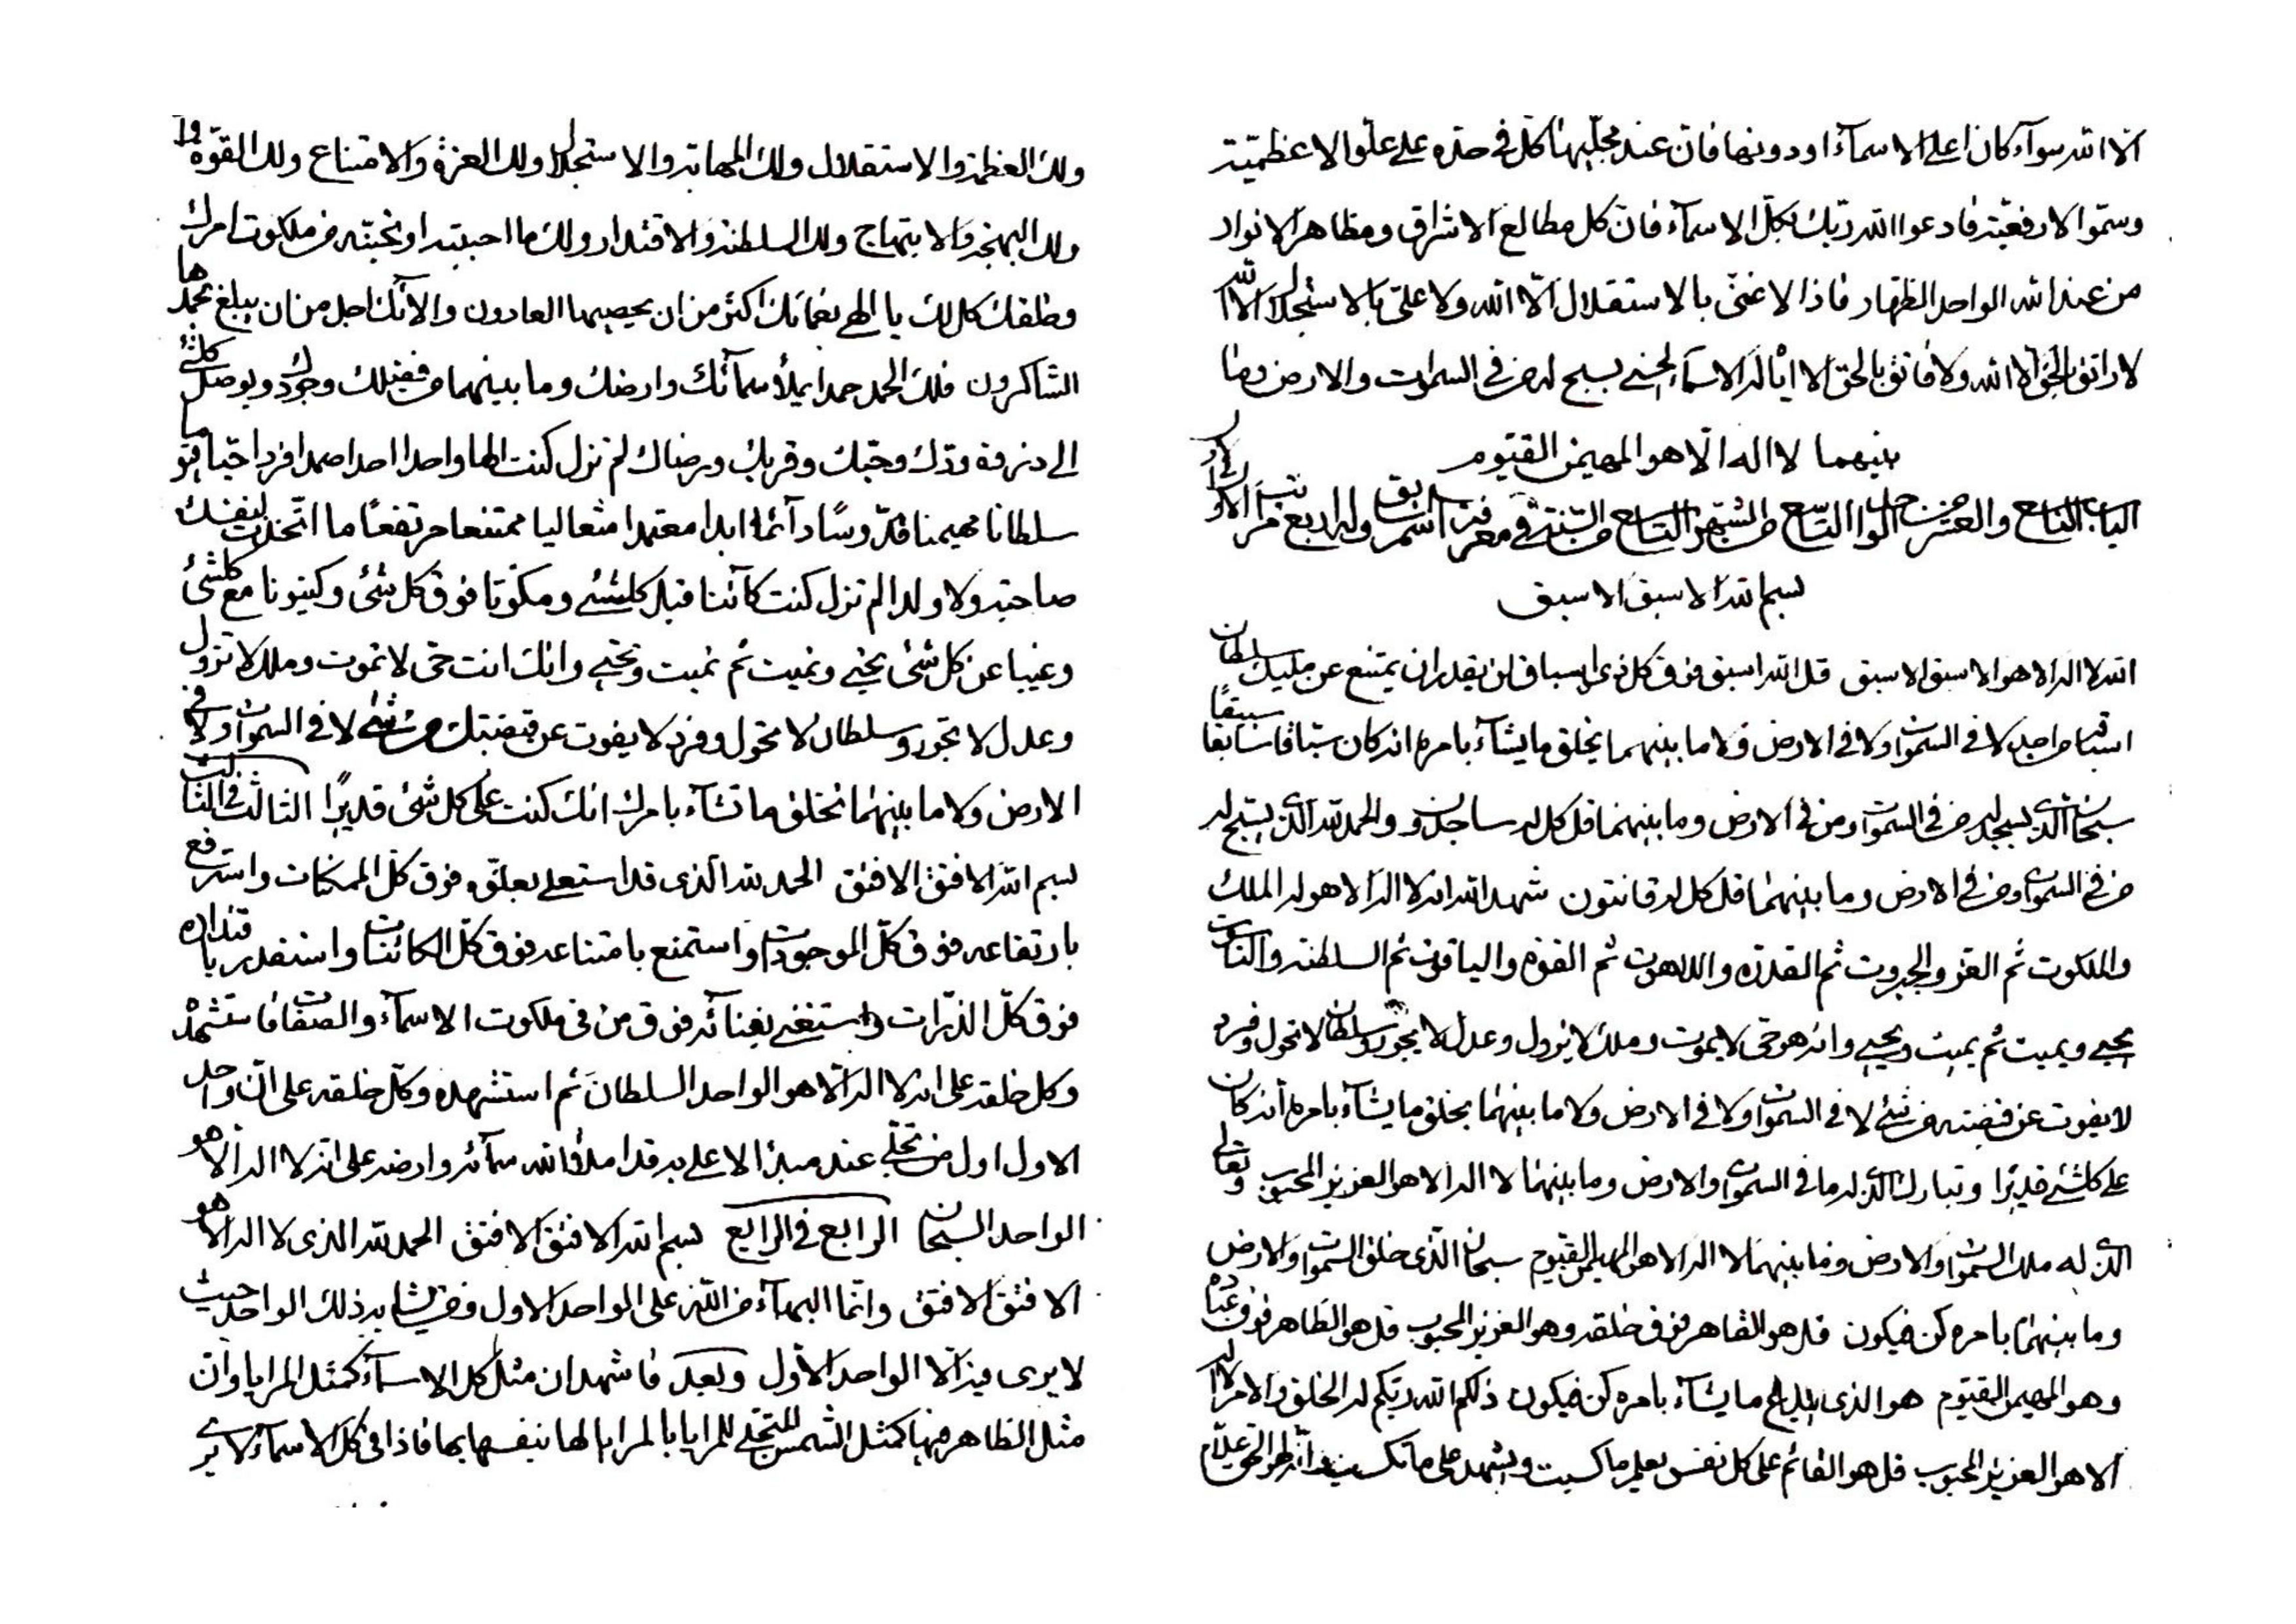 الا الله سوآء كان اعلى الاسمآء او دونها فان عند مجليها كل فى حده على علو الاعظمية
وسمو الارفعية فادعوا الله ربك بكل الاسمآء فان كل مطالع الاشراق ومظاهر الانوار
من عند الله الواحد الظهار فاذا لا غنى بالاستقلال الا الله ولا على بالاستجلال الا الله
لا راتق بالحق الا الله ولا فاتق بالحق الا اياه له الاسمآء الحسنى يسبح له من فى السموات والارض وما
بينهما لا اله الا هو المهيمن القيوم
الباب التاسع والعشر من الواحد التاسع من الشهر التاسع من السنة فى معرفة اسم وله اربع مراتب الاول فى الاول
بسم الله الاسبق الاسبق
الله لا اله الا هو الاسبق الاسبق قل الله اسبق فوق كل ذى اسباق لن يقدر ان يمتنع عن مليك سلطان
اسباقه من احد لا فى السموات ولا فى الارض ولا ما بينهما يخلق ما يشآء بامره انه كان سباقا سابقا سبيقا
سبحان الذى يسجد له من فى السموات ومن فى الارض وما بينهما قل كل له ساجدون والحمد لله الذى يسبح له
من فى السموات ومن فى الارض وما بينهما قل كل له قانتون شهد الله انه لا اله الا هو له الملك
والملكوت ثم العز والجبروت ثم القدرة واللاهوت ثم القوة والياقوت ثم السلطنة والناسوت
يحيى ويميت ثم يميت ويحيى وانه هو حى لا يموت وملك لا يزول وعدل لا يجور وسلطان لا يحول وفرد
لا يفوت عن قبضته من شئ لا فى السموات ولا فى الارض ولا ما بينهما يخلق ما يشآء بامره انه كان
على كلشئ قديرا وتبارك الذى له ما فى السموات والارض وما بينهما لا اله الا هو العزيز المحبوب وتعالى
الذى له ملك السموات والارض وما بينهما لا اله الا هو المهيمن القيوم سبحان الذى خلق السموات والارض
وما بينهما بامره كن فيكون قل هو القاهر فوق خلقه وهو العزيز المحبوب قل هو الظاهر فوق عباده
وهو المهيمن القيوم هو الذى يبدع ما يشآء بامره كن فيكون ذلكم الله ربكم له الخلق والامر لا اله
الا هو العزيز المحبوب قل هو القائم على كل نفس يعلم ما كسبت ويشهد على ما تكسب وانه لهو الحق علام
ولك العظمة والاستقلال ولك المهابة والاستجلال ولك العزة والامتناع ولك القوة
ولك البهجة والابتهاج ولك السلطنة والاقتدار ولك ما احببته او تحبنه من ملكوت امرك
وخلقك كل لك يا الهى نعمائك اكثر من ان يحصيها العادون والائك اجل من ان يبلغ بحمدها
الشاكرون فلك الحمد حمدا يملأ سمآئك وارضك وما بينهما من فضلك وجودك ويوصل كلشئ
الى ودك وحبك وقربك ورضاك لم تزل كنت الها واحدا احدا صمدا فردا حيا قيوما
سلطانا مهيمنا قدوسا دآئما ابدا معتمدا متعاليا ممتنعا مرتفعا ما اتخذت لنفسك
صاحبة ولا ولدا لم تزل كنت كآئنا قبل كلشئ ومكونا فوق كل شئ وكينونا مع كلشئ
وغنيا عن كل شئ تحيى وتميت ثم تميت وتحيى وانك انت حى لا تموت وملك لا تزول
وعدل لا تجور وسلطان لا تحول وفرد لا يفوت عن قبضتك من شئ لا فى السموات ولا فى
الارض ولا ما بينهما تخلق ما تشآء بامرك انك كنت على كل شئ قديرا الثالث فى الثالث
بسم الله الافتق الافتق الحمد لله الذى قد استعلى بعلوه فوق كل الممكنات واسترفع
بارتفاعه فوق كل الموجودات واستمنع بامتناعه فوق كل الكائنات واستقدر باقتداره
فوق كل الذرات واستغنى بغنآئه فوق من فى ملكوت الاسمآء والصفات فاستشهده
وكل خلقه على انه لا اله الا هو الواحد السلطان ثم استشهده وكل خلقه على ان واحد
الاول اول من تجلى عند مبدء الاعلى به قد املأ الله سمآئه وارضه على انه لا اله الا هو
الواحد السبحان الرابع فى الرابع بسم الله الافتق الافتق الحمد لله الذى لا اله الا هو
الافتق الافتق وانما البهآء من الله على الواحد الاول ومن يشابه ذلك الواحد حيث
لا يرى فيه الا الواحد الاول وبعد فاشهد ان مثل كل الاسمآء كمثل المرايا وان
مثل الظاهر فيها كمثل الشمس المتجلى للمرايا بالمرايا لها بنفسها بها فاذا فى كل الاسمآء لا يرى